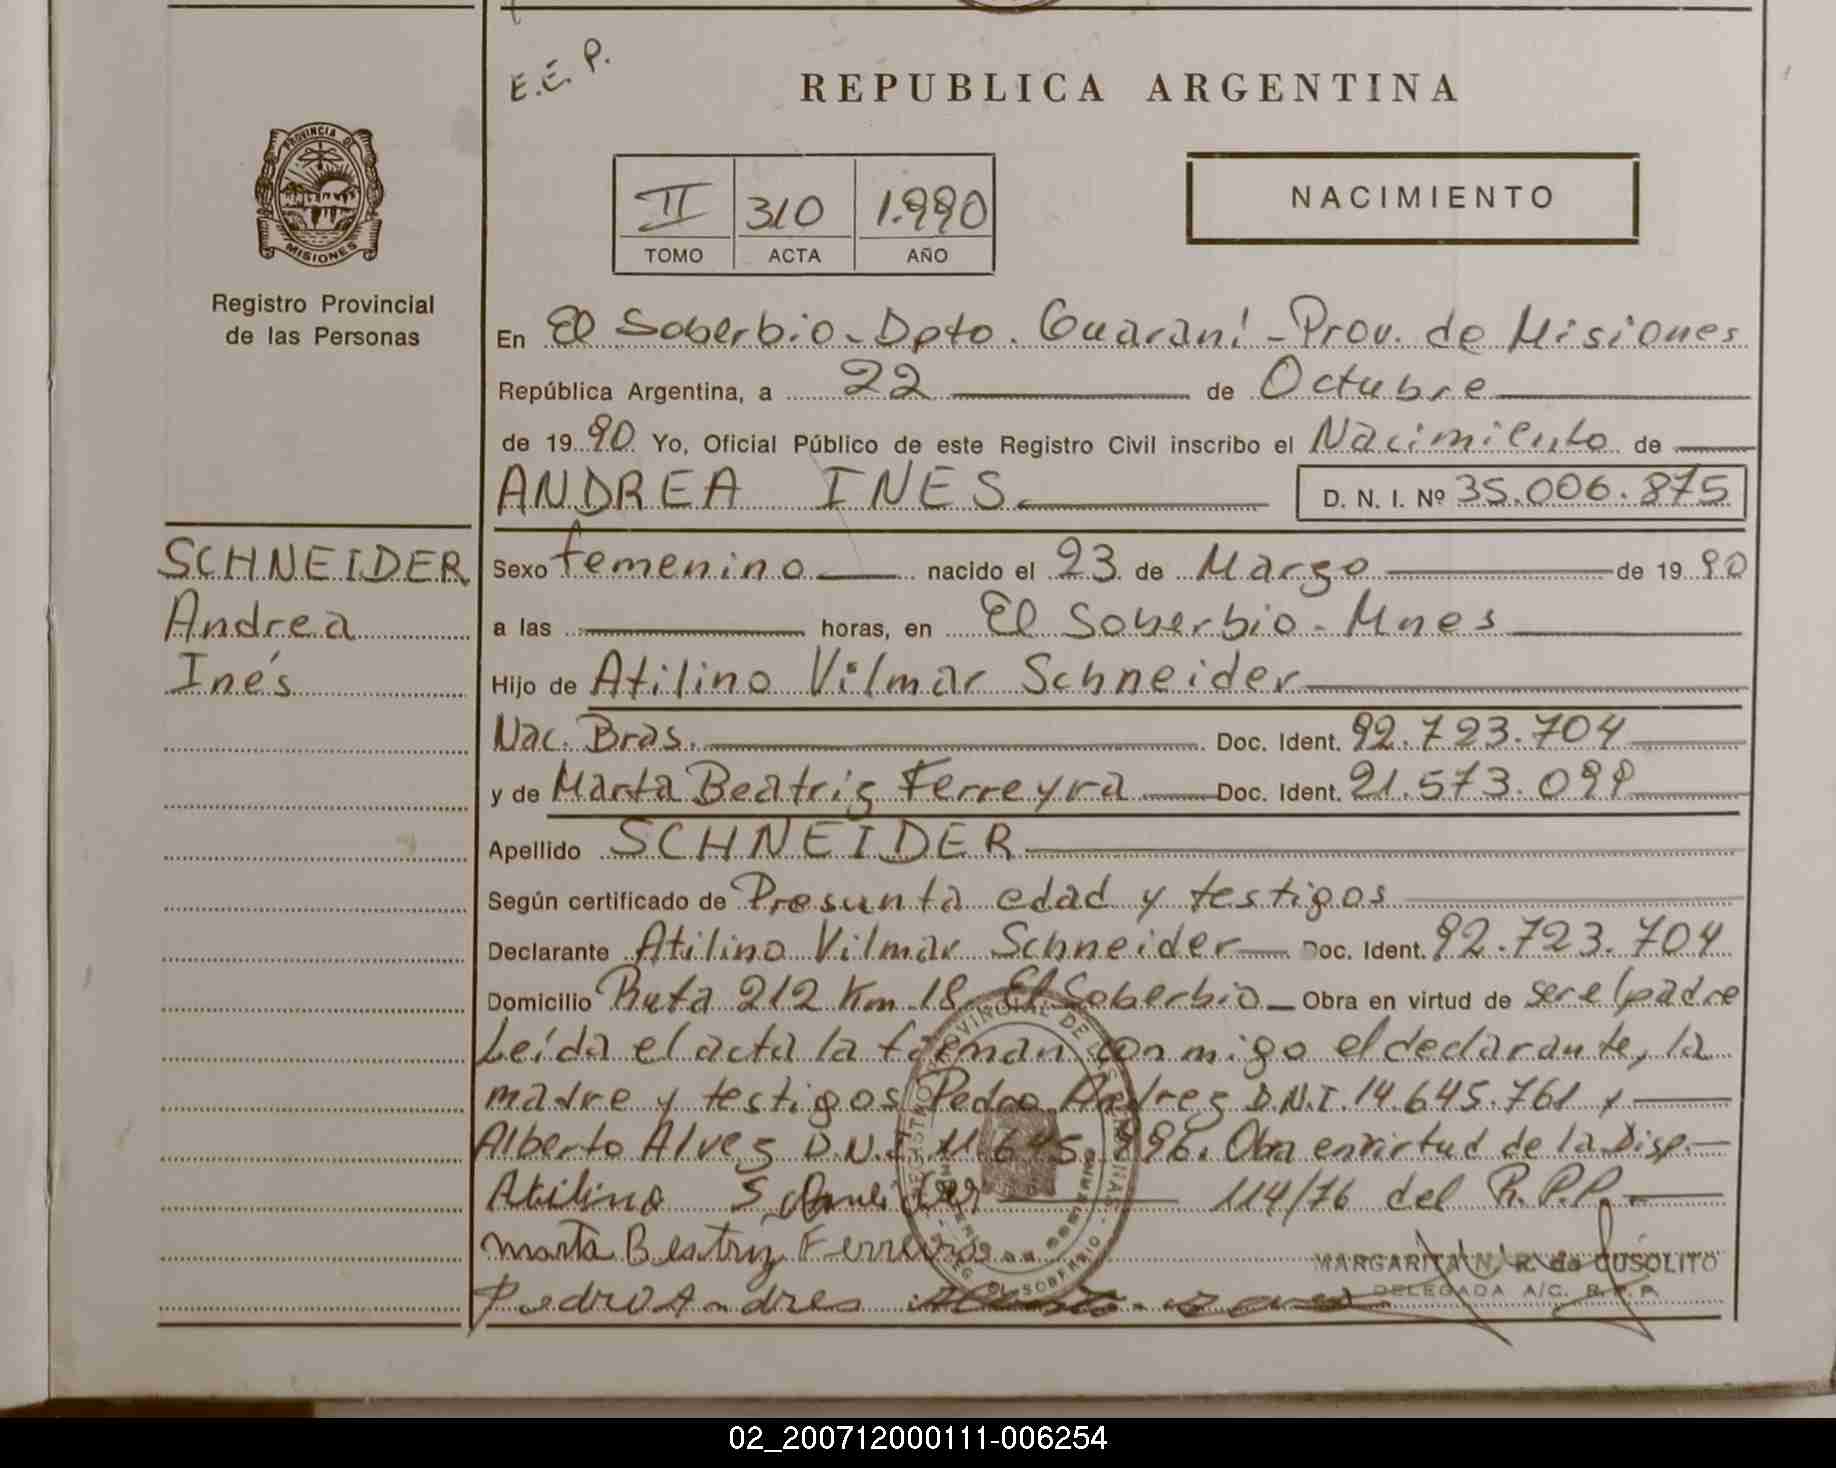 E.E.P.
REPUBLICA ARGENTINA
PROVINCIA DE
MISIONES
Registro Provincial
de las Personas
II 310 1.990
TOMO ACTA AÑO
NACIMIENTO
En El Soberbio - Dpto. Guaraní - Prov. de Misiones
República Argentina, a 22 de Octubre
de 19 90 Yo, Oficial Público de este Registro Civil inscribo el Nacimiento de
ANDREA INES D. N. I. Nº 35.006.875
SCHNEIDER
Andrea
Inés
Sexo femenino nacido el 23 de Marzo de 19 90
a las horas, en El Soberbio - Mnes
Hijo de Atilino Vilmar Schneider
Nac. Bras. Doc. Ident. 92.723.704
y de Marta Beatriz Ferreyra Doc. Ident. 21.573.099
Apellido SCHNEIDER
Según certificado de Presunta edad y testigos
Declarante Atilino Vilmar Schneider Doc. Ident. 92.723.704
Domicilio Ruta 212 Km 18 El Soberbio Obra en virtud de ser el padre
Leída el acta la firman conmigo el declarante, la
madre y testigos Pedro Andrez D.N.I. 14.645.761 y
Alberto Alvez D.N.I. 11.645.996. Obra en virtud de la Disp.
Atilino Schneider 114/76 del R.P.P.
Marta Beatriz Ferreyra
MARGARITA N. R. de CUSOLITO
DELEGADA A/C. R.P.P.
Pedro Andres
02_200712000111-006254